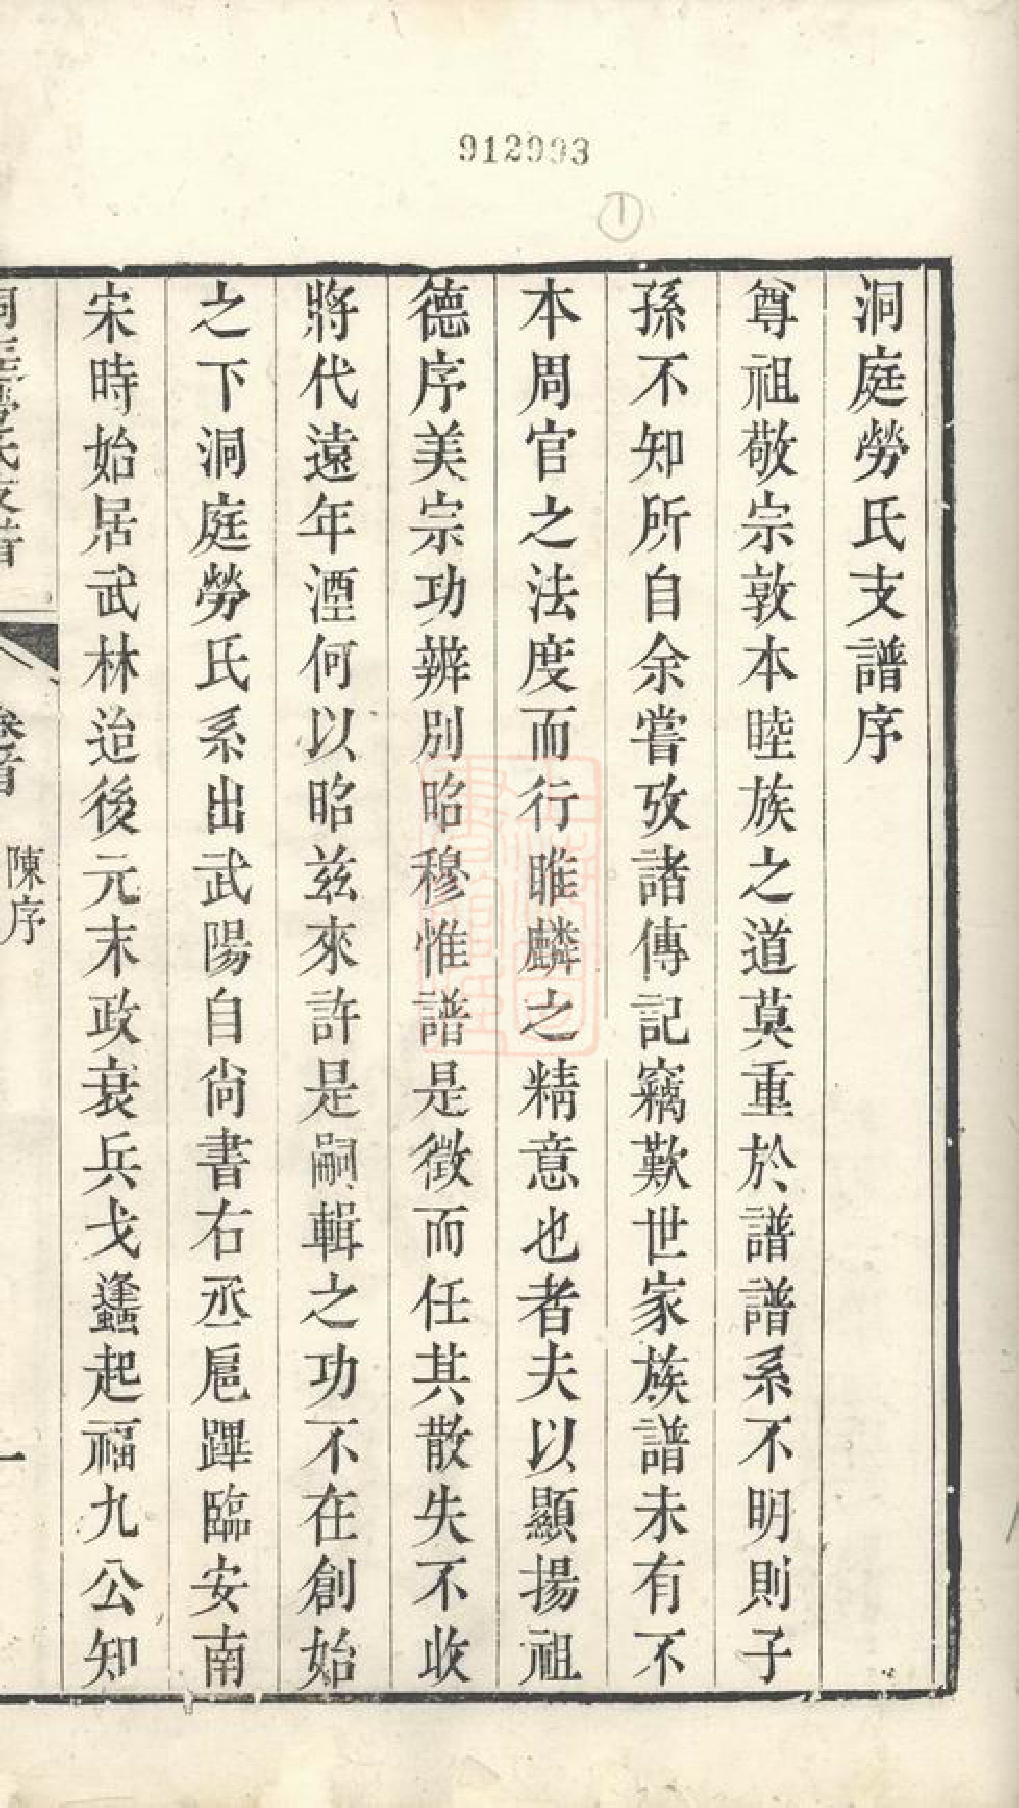 912993
1
洞庭勞氏支譜序
尊祖敬宗敦本睦族之道莫重於譜譜系不明則子
孫不知所自余嘗攷諸傳記竊歎世家族譜未有不
本周官之法度而行睢麟之精意也者夫以顯揚祖
德序美宗功辨別昭穆惟譜是徵而任其散失不收
將代遠年湮何以昭茲來許是嗣輯之功不在創始
之下洞庭勞氏系出武陽自尙書右丞扈蹕臨安南
宋時始居武林迨後元末政衰兵戈蠭起福九公知
洞庭勞氏支譜
卷首
陳序
一